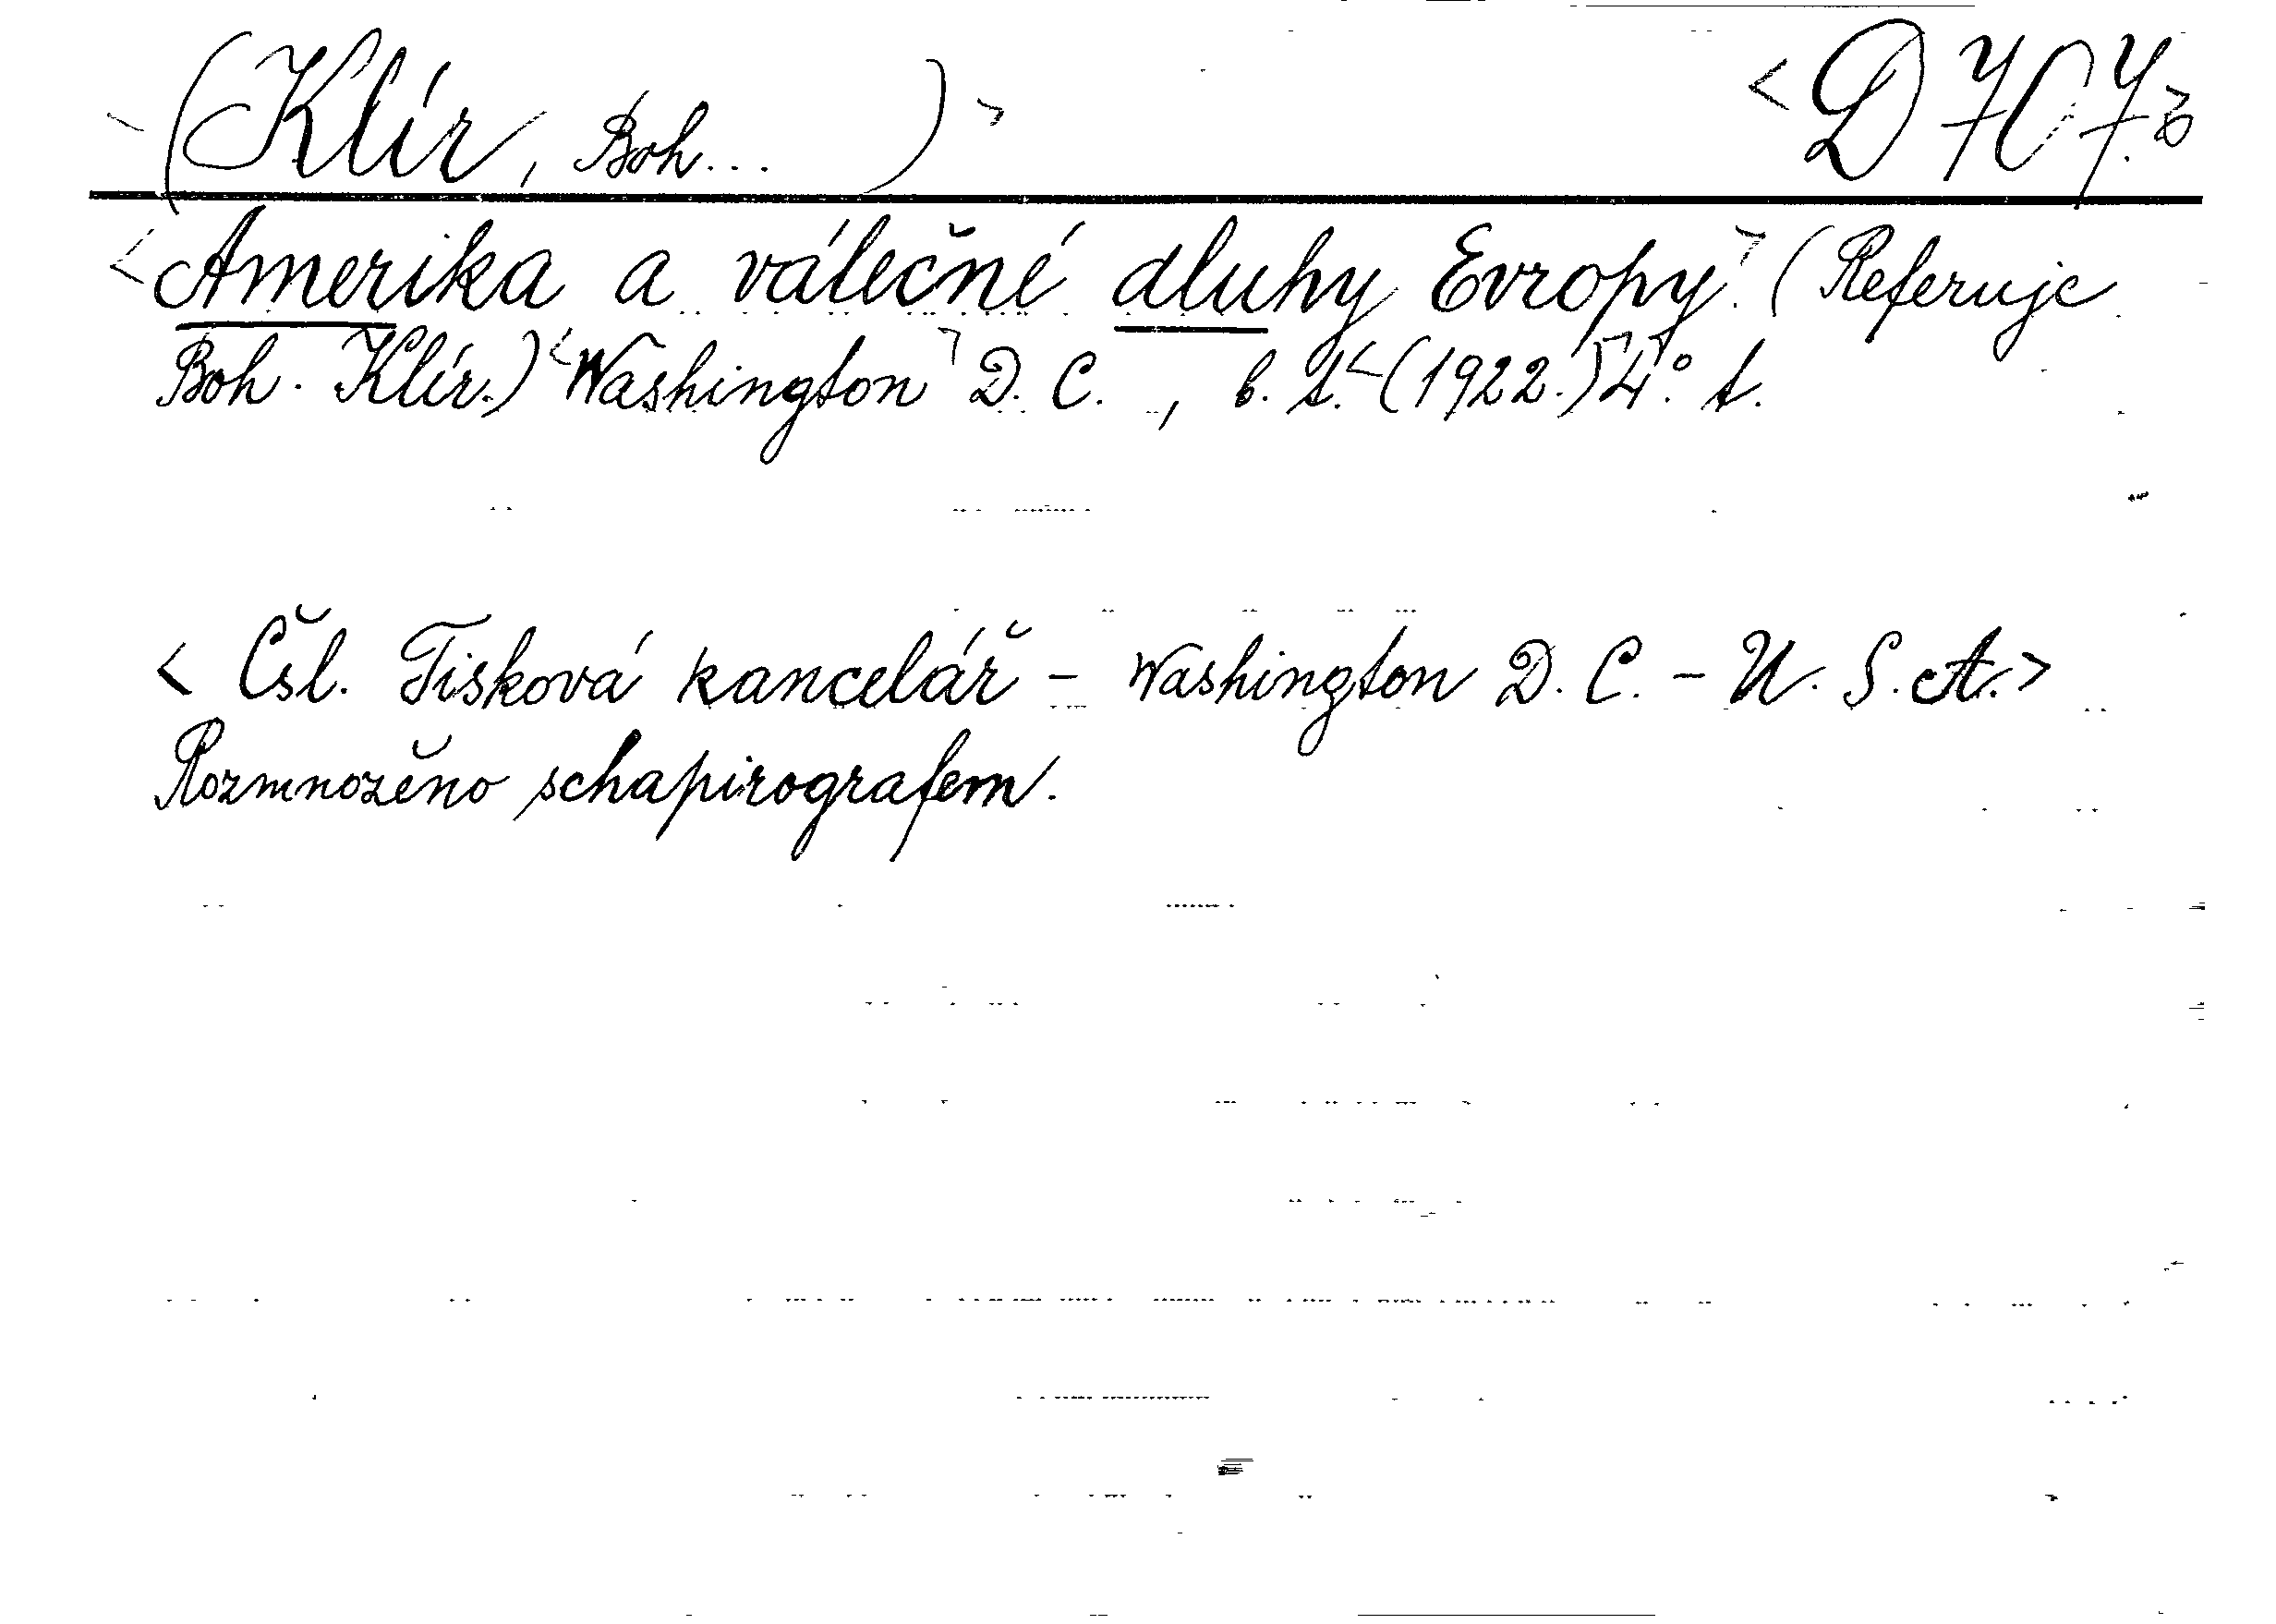 <(Klír, Boh... )> <D 707.>
<Amerika a válečné dluhy Evropy.> (Referuje
Boh. Klír.) <Washington> D. C. , b. t. <(1922.)> 4°. s.
< Čsl. Tisková kancelář - Washington D. C. - U. S. A. >
Rozmnožěno schapirografem.